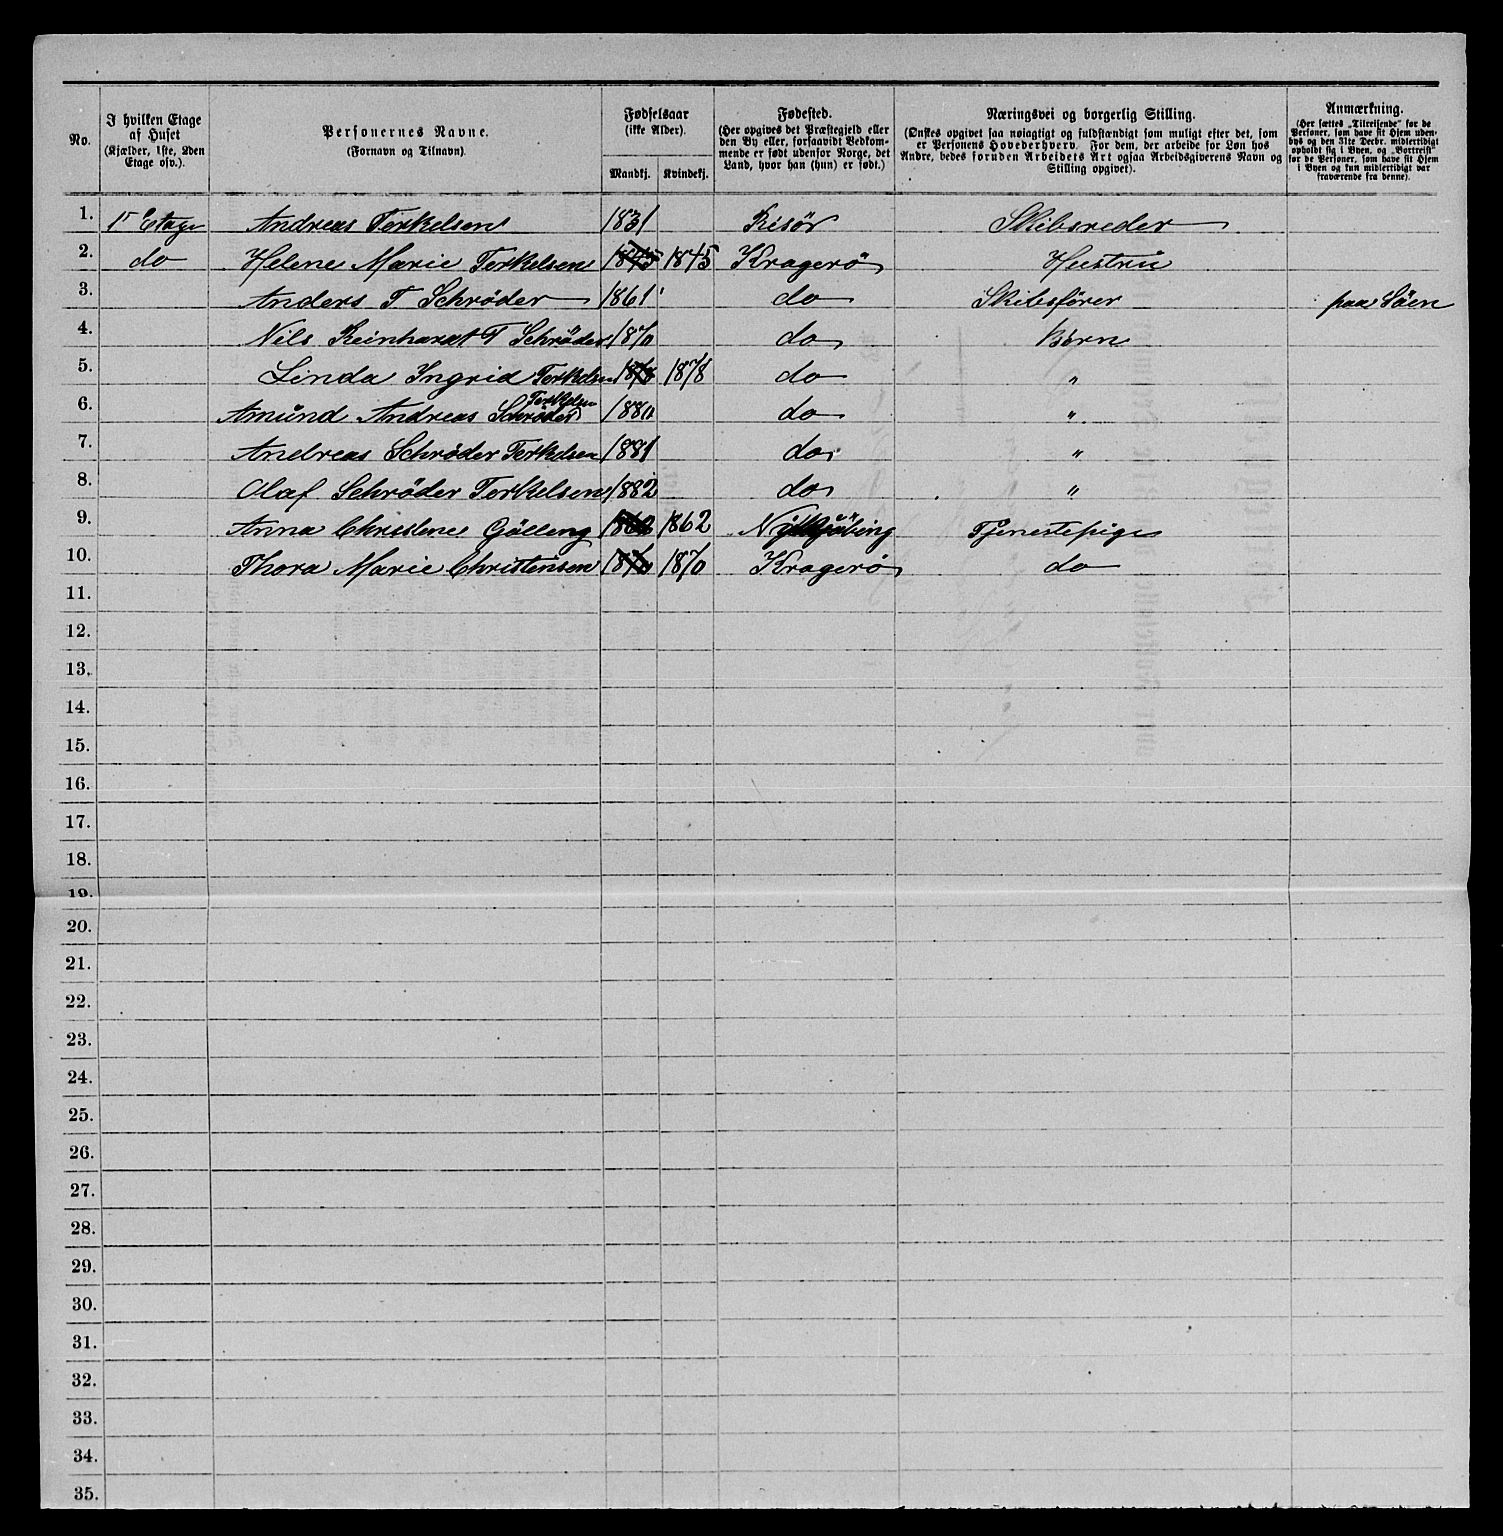 No.
I hvilken Etage
af Huset
(Kjælder, 1ste, 2den
Etage osv.).
Personernes Navne.
(Fornavn og Tilnavn).
Fødselsaar
(ikke Alder).
Mandkj. Kvindekj.
Fødested.
(Her opgives det Præstegjeld eller
den By eller, forsaavidt Vedkom-
mende er født udenfor Norge, det
Land, hvor han (hun) er født.)
Næringsvei og borgerlig Stilling.
(Ønskes opgivet saa nøiagtigt og fuldstændigt som muligt efter det, som
er Personens Hovederhverv. For dem, der arbeide for Løn hos
Andre, bedes foruden Arbeidets Art ogsaa Arbeidsgiverens Navn og
Stilling opgivet).
Anmærkning.
(Her sættes „Tilreisende" for de
Personer, som have sit Hjem uden-
bys og den 31te Decbr. midlertidigt
opholdt sig i Byen, og „Bortreist"
for de Personer, som have sit Hjem
i Byen og kun midlertidigt var
fraværende fra denne).
1. 1ste Etage Andreas Terkelsen 1831 Risör Skibsreder
2. do Helene Marie Terkelsen 1845 1845 Kragerö Hustru
3. Anders T Schrøder 1861 do Skibsfører paa Söen
4. Nils Reinhardt T Schrøder 1870 do Børn
5. Linda Ingrid Terkelsen 1878 1878 do "
6. Amund Andreas Schrøder Terkelsen 1880 do "
7. Andreas Schrøder Terkelsen 1881 do "
8. Olaf Schrøder Terkelsen 1882 do "
9. Anna Christene 1862 1862 Nykjöbing Tjenestepige
10. Thora Marie Christensen 1870 1870 Kragerö do
11.
12.
13.
14.
15.
16.
17.
18.
19.
20.
21.
22.
23.
24.
25.
26.
27.
28.
29.
30.
31.
32.
33.
34.
35.